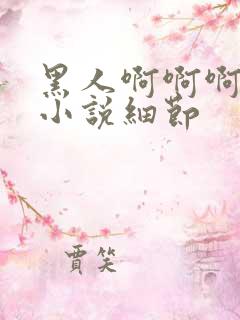 黑人啊啊啊
小說細節
賈笑